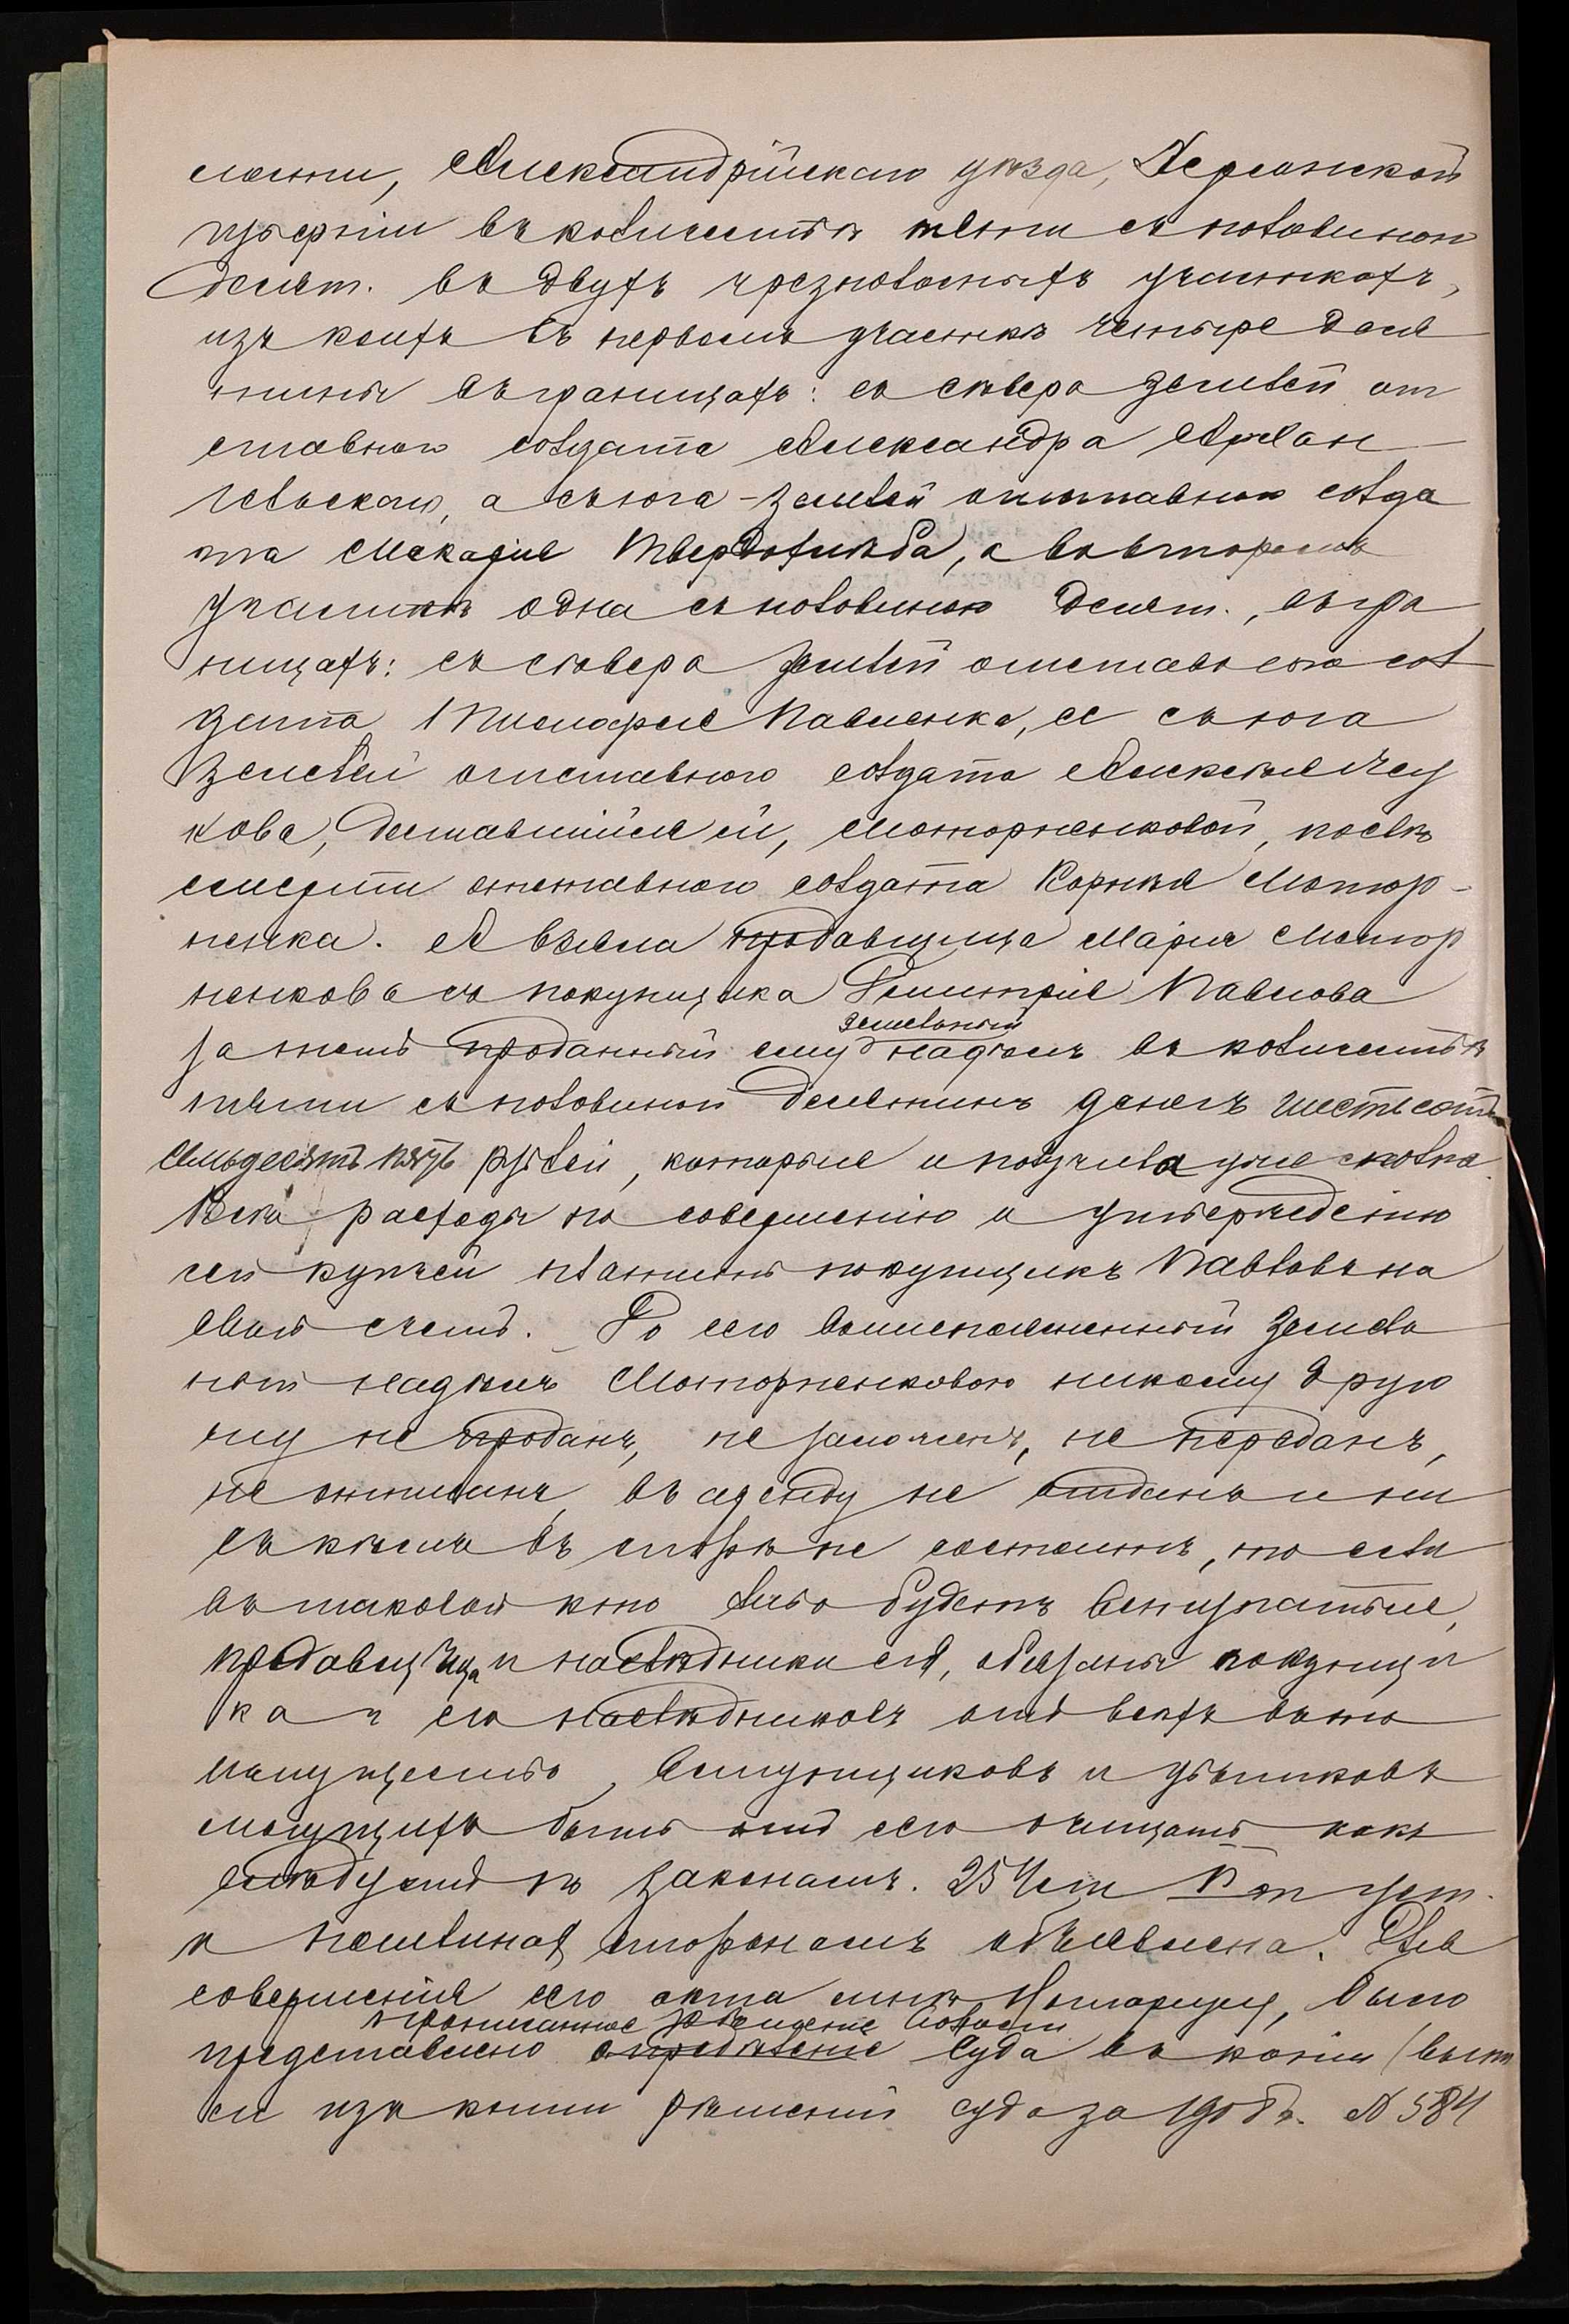 лости, Александрійскаго уѣзда, Херсонской
губерніи въ количествѣ пяти съ половиною
десят. въ двухъ чрезполосныхъ участкахъ,
изъ коихъ въ первомъ участкѣ четыре деся
тины въ границахъ: съ сѣвера землей от
ставного солдата Александра
а съ юга - землей отставного солда
та Макарія Твердохлѣба, а во второмъ
участкѣ одна съ половиною десят., въ гра
ницахъ: съ сѣвера землей отставного сол
дата Павленка, а съ юга
землей отставного солдата Алексѣя Чау
кова, доставшійся ей, Моторненковой, послѣ
смерти отставного солдата Корнѣя Мотор-
ненка. А взяла продавщица Марія Мотор
ненкова съ покупщика Димитрія Павлова
за тотъ проданный ему земельный надѣлъ въ количествѣ
пяти съ половиной десятинъ денегъ шестьсотъ
семьдесятъ пять рублей, которые и получила уже сполна.
Всѣ расходы по совершенію и утвержденію
сей купчей платитъ покупщикъ Павловъ на
свой счетъ. До сего вышеписанный земель
ный надѣлъ Моторненковою никому друго
му не проданъ, не заложенъ, не переданъ,
не отписанъ, въ аренду не отданъ и ни
съ кѣмъ въ спорѣ не состоитъ, то если
въ таковой кто либо будетъ вступаться,
продавщица и наслѣдники ея, обязаны покупщи
ка и его наслѣдниковъ отъ всѣхъ въ то
имущество, вступщиковъ и убытковъ
могущихъ быть отъ сего очищать какъ
слѣдуетъ по законамъ. 254 ст. V т уст.
о пошлинахъ сторонамъ объявлена. Для
совершенія сего акта мнѣ, Нотаріусу, было
прописанное рѣшеніе Волостн
представлено опредѣленіе Суда въ копіи (выпи
си изъ книги рѣшеній суда за 190 г. № 584